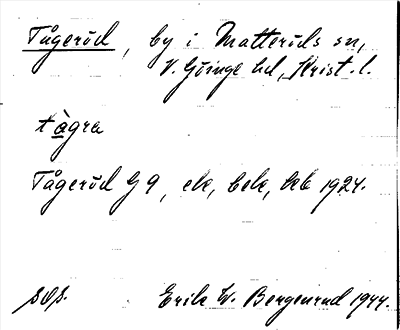 Tågeröd, by i Matteröds sn,
V. Göinge hd, Krist. l.
tàgra
Tågeröd G 9, ek, bek, hk 1924.
SOS. Erik W. Bergenrud 1944.